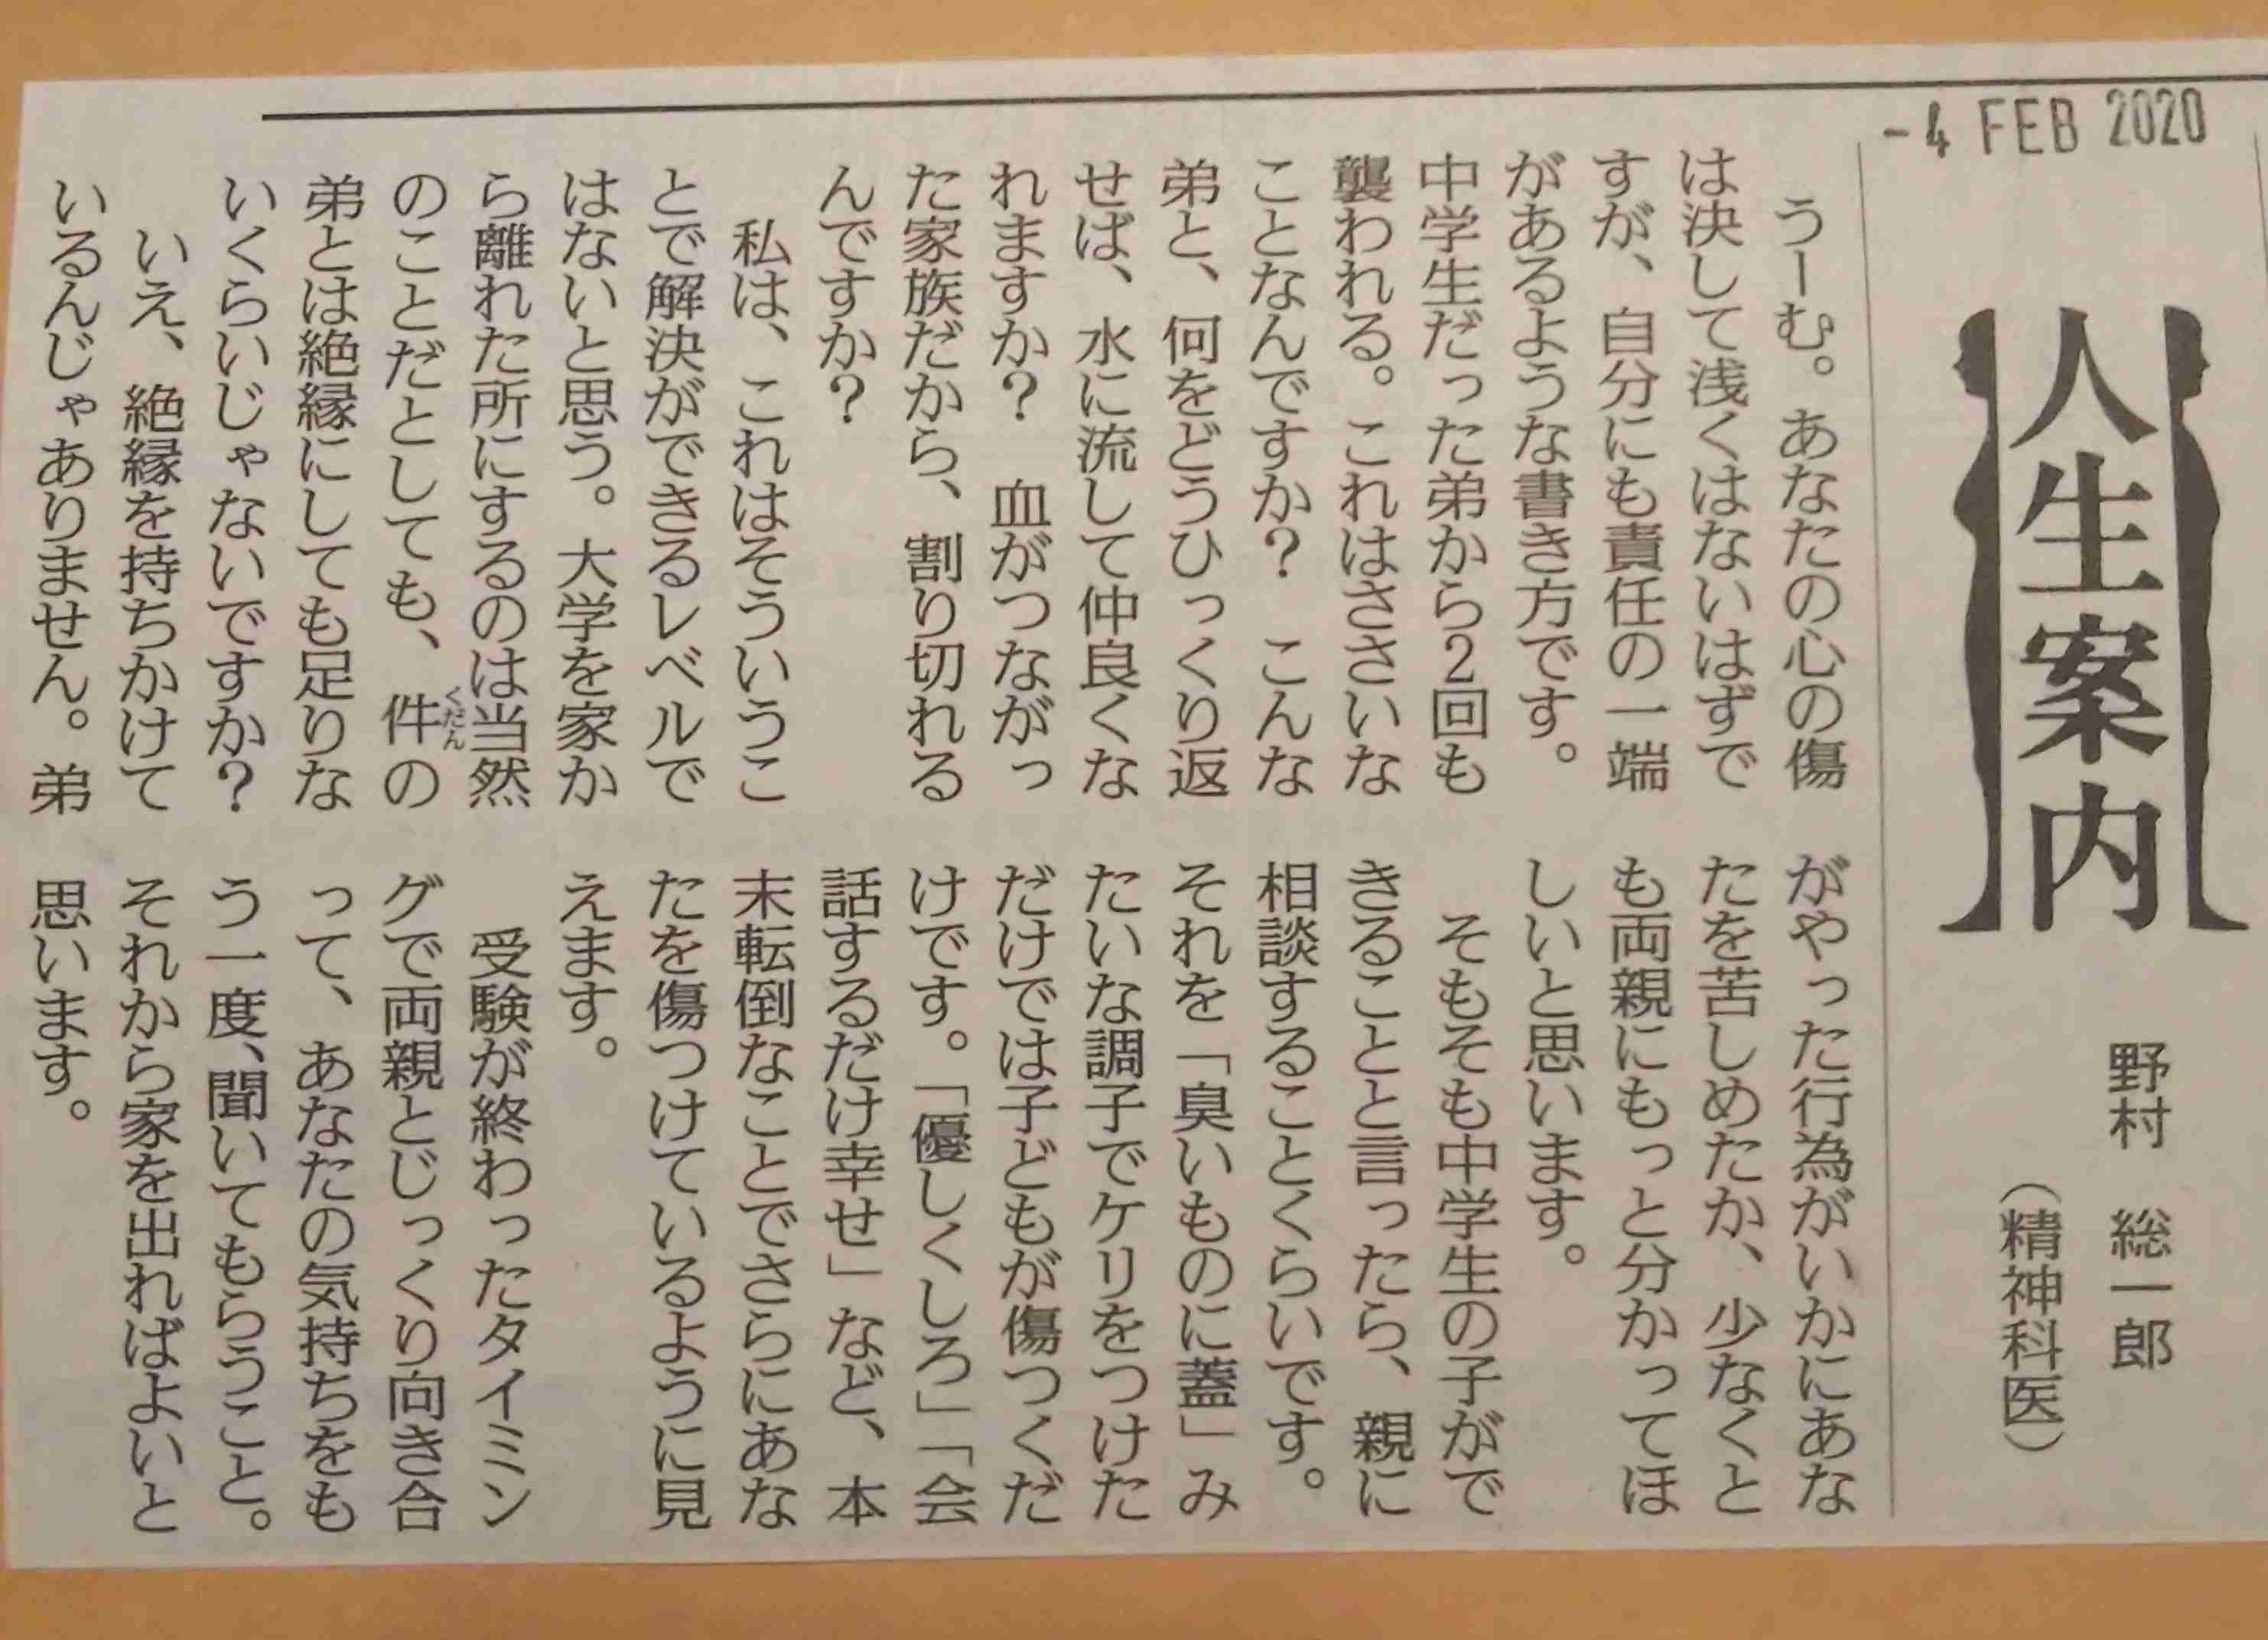 -4 FEB 2020
人生案内
野村 総一郎
(精神科医)
うーむ。あなたの心の傷
は決して浅くはないはずで
すが、自分にも責任の一端
があるような書き方です。
中学生だった弟から2回も
襲われる。これはささいな
ことなんですか? こんな
弟と、何をどうひっくり返
せば、水に流して仲良くな
れますか? 血がつながっ
た家族だから、割り切れる
んですか?
私は、これはそういうこ
とで解決ができるレベルで
はないと思う。大学を家か
ら離れた所にするのは当然
のことだとしても、件くだんの
弟とは絶縁にしても足りな
いくらいじゃないですか?
いえ、絶縁を持ちかけて
いるんじゃありません。弟
がやった行為がいかにあな
たを苦しめたか、少なくと
も両親にもっと分かってほ
しいと思います。
そもそも中学生の子がで
きることと言ったら、親に
相談することくらいです。
それを「臭いものに蓋」み
たいな調子でケリをつけた
だけでは子どもが傷つくだ
けです。「優しくしろ」「会
話するだけ幸せ」など、本
末転倒なことでさらにあな
たを傷つけているように見
えます。
受験が終わったタイミン
グで両親とじっくり向き合
って、あなたの気持ちをも
う一度、聞いてもらうこと。
それから家を出ればよいと
思います。